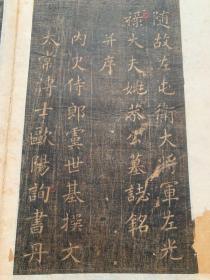 随故左屯衛大將軍左光
祿大夫姚恭公墓誌銘
并序
内史侍郎虞世基撰文
太常博士歐陽詢書丹